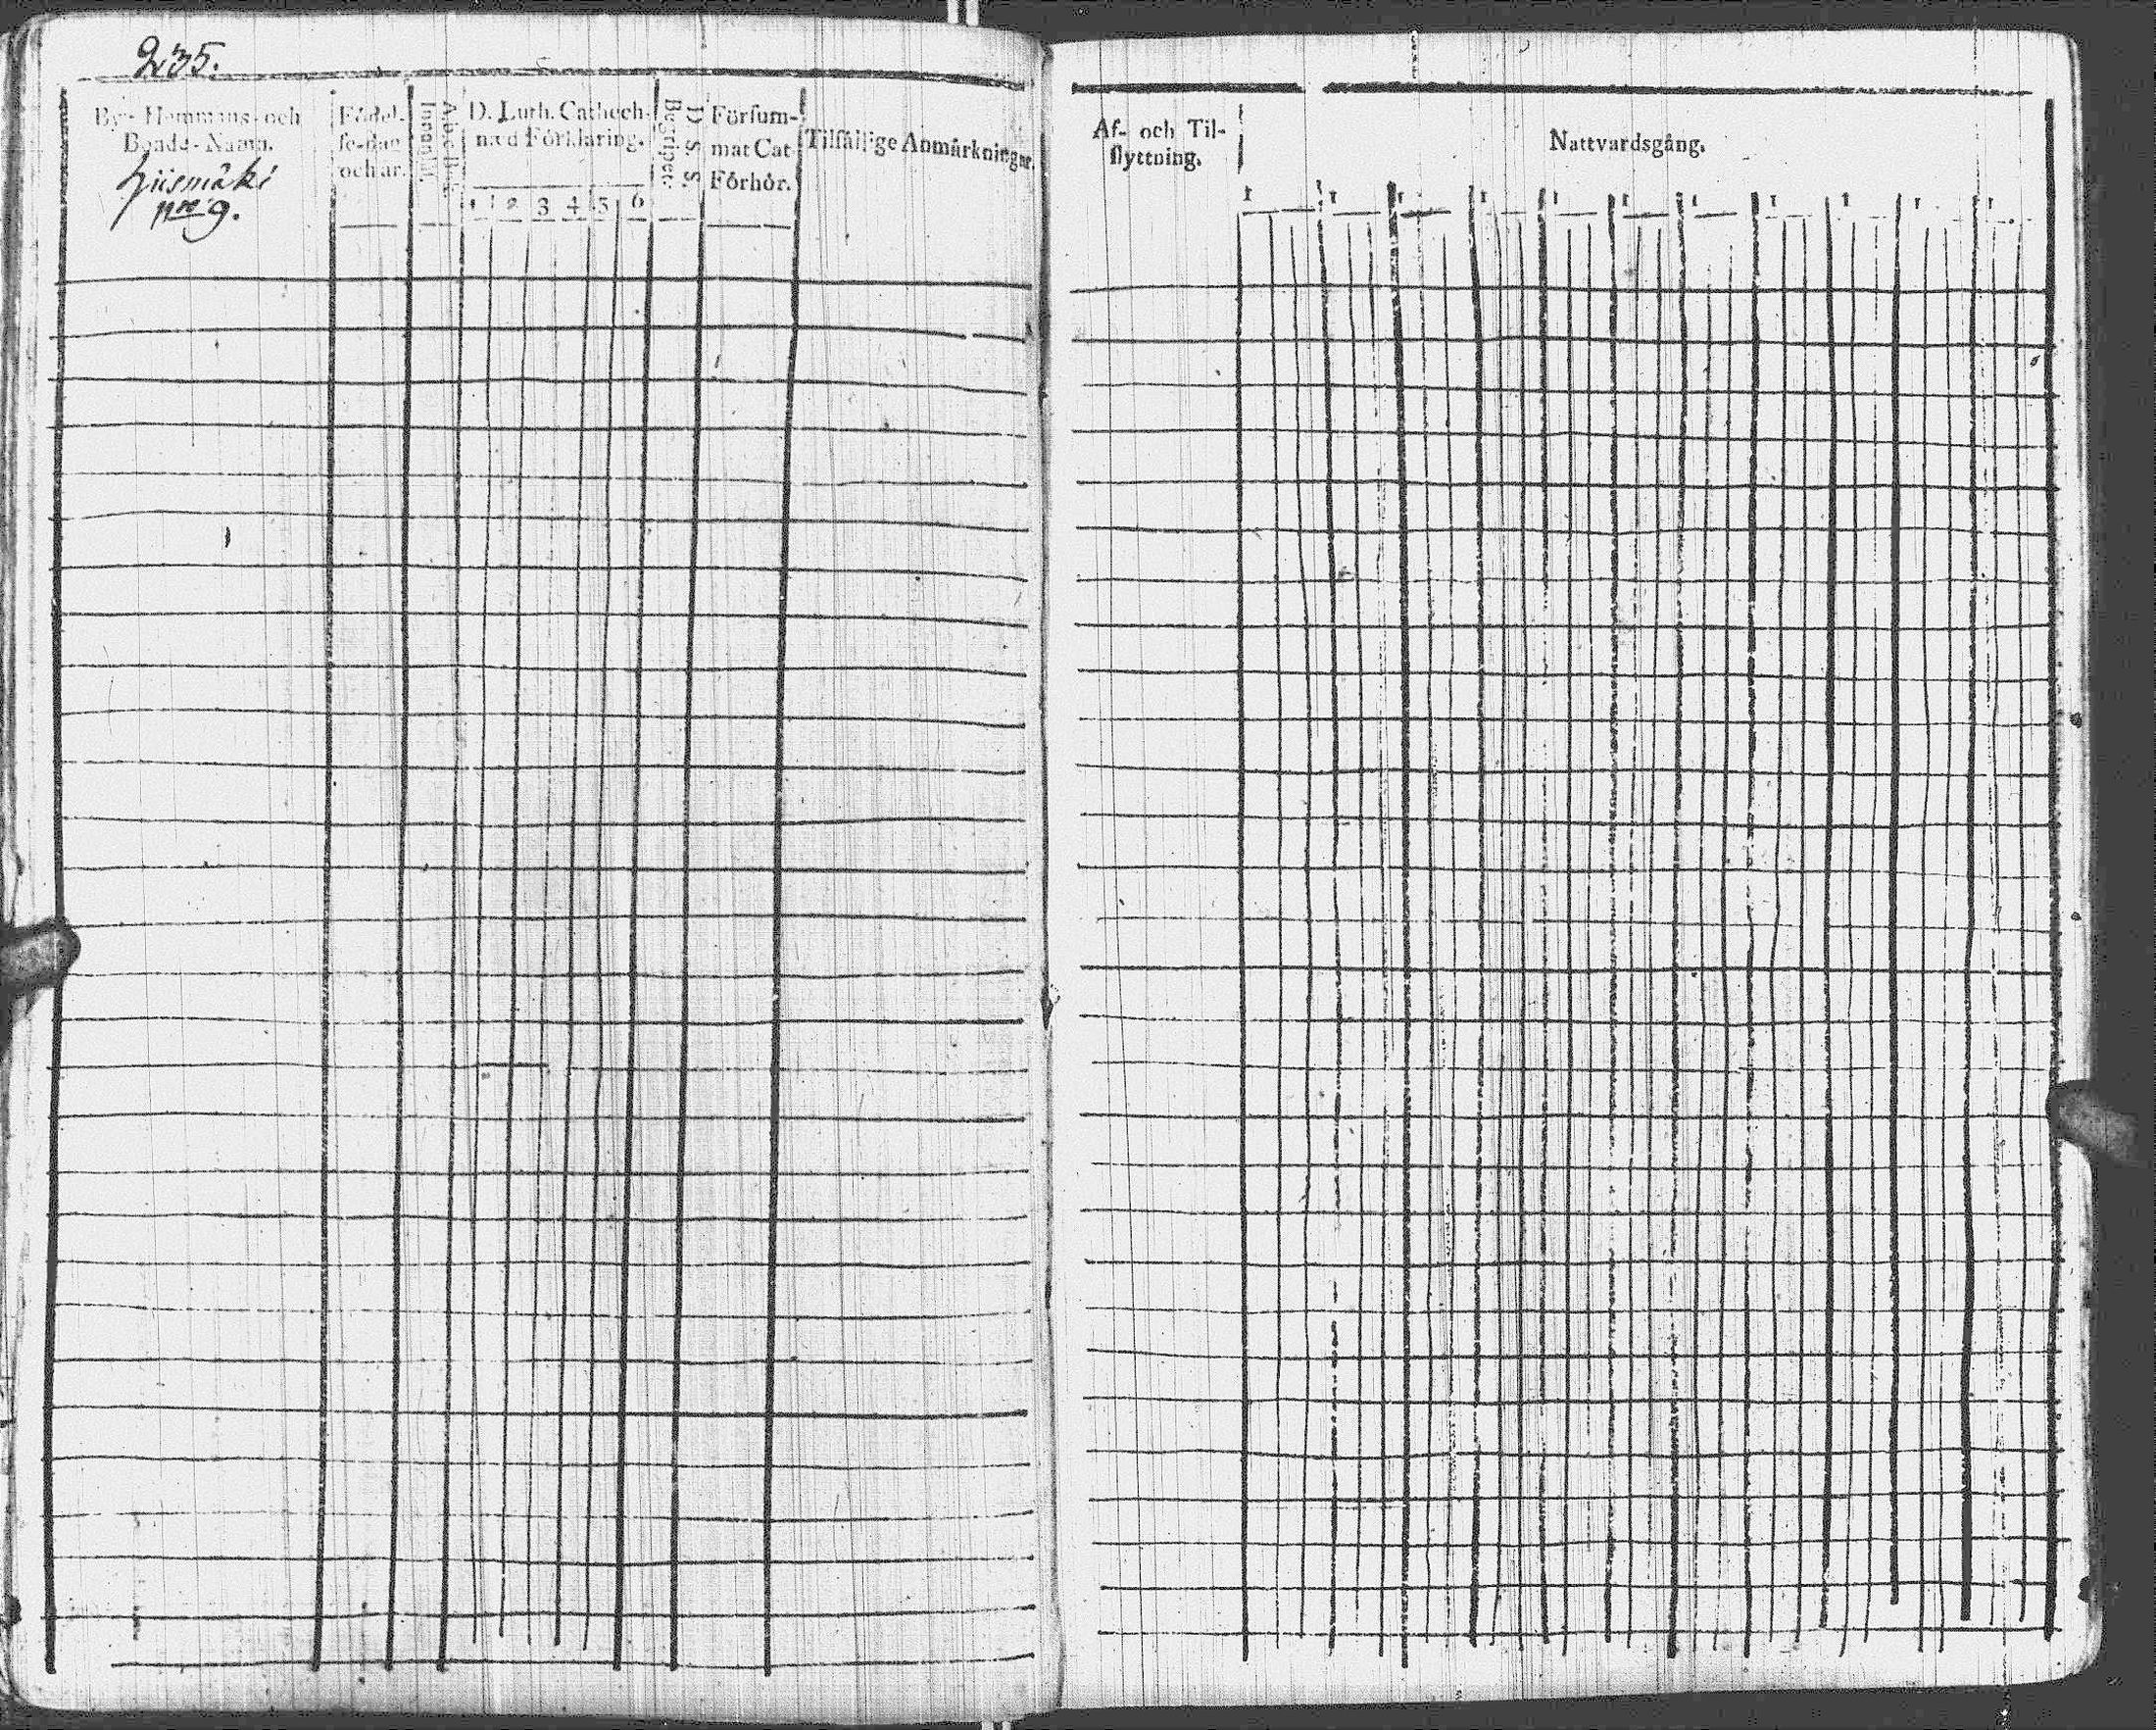 235.
By- Hemmans- och
Bonde-Namn.
Hiismäki
nro 9.
Födel-
se-dag
och år.
A, b, c, Bok
Innantil.
D. Luth. Cathech.
med Förklaring.
1 2 3 4 5 6
D. S. S.
Begripet.
Försum-
mat Cat.
Förhör.
Tilfällige Anmärkningar.
Af- och Til-
flyttning.
Nattvardsgång.
1 1 1 1 1 1 1 1 1 1 1